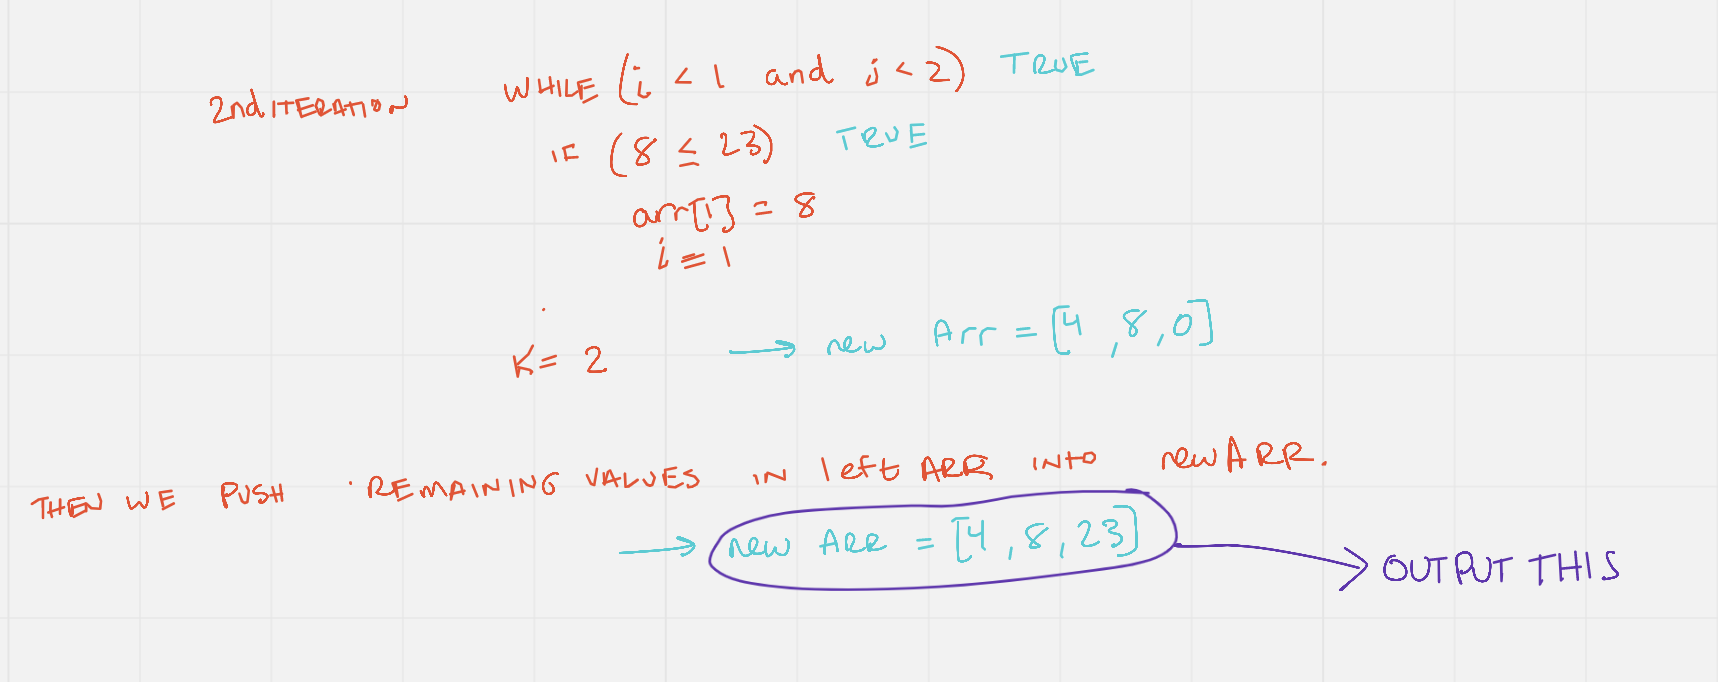 2nd ITERATION WHILE (i < 1 and j < 2) TRUE
IF (8 ≤ 23) TRUE
arr[1] = 8
i = 1
K = 2 → new Arr = [4 , 8 , 0]
THEN WE PUSH REMAINING VALUES IN left ARR INTO new ARR.
→ new ARR = [4 , 8 , 23] → OUTPUT THIS